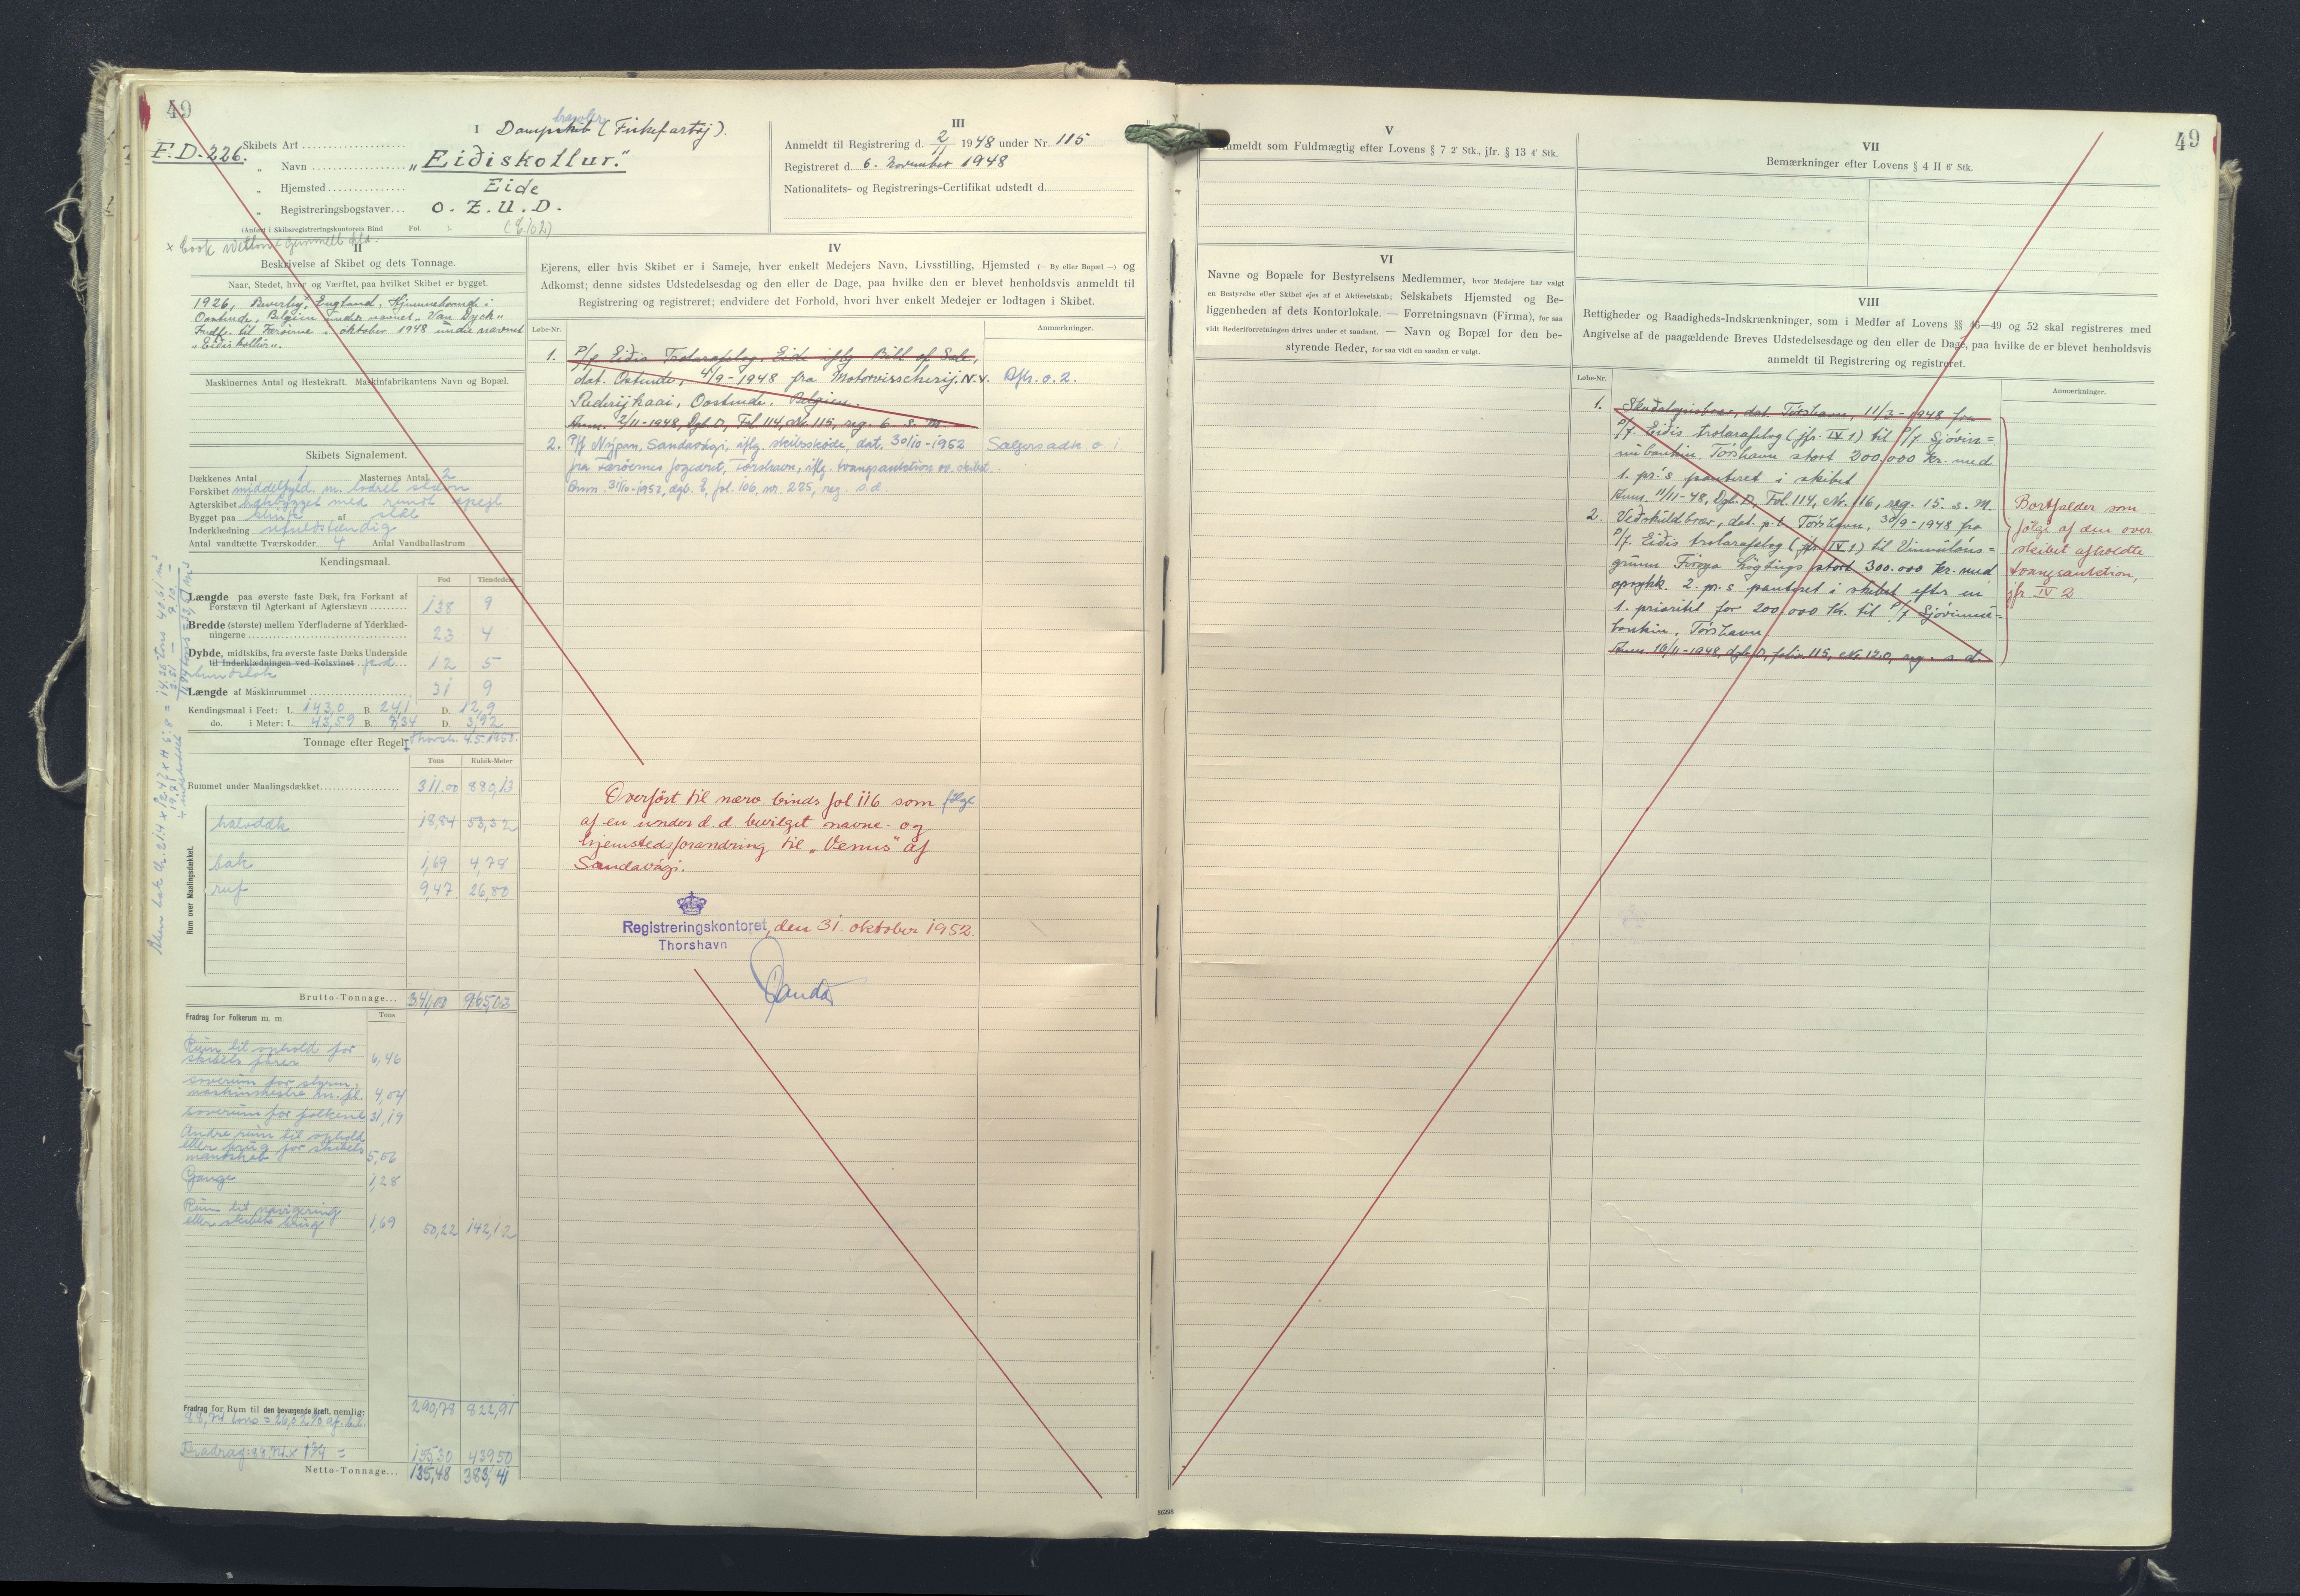 49
trawler
I Dampskib (Fiskefartøj).
F.D. 226.
Skibets Art
" Navn „Eiðiskollur."
" Hjemsted Eide
" Registreringsbogstaver... O.Z.U.D.
(Anført i Skibsregistreringskontorets Bind Fol. ).
+ Cook Welton & Gemmell Ltd.
II
Beskrivelse af Skibet og dets Tonnage.
Naar, Stedet, hvor og Værftet, paa hvilket Skibet er bygget.
1926, Beverley, England. Hjemmehørende i
Oostende, Belgien under navnet „Van Dyck"
Indf. til Færøerne i oktober 1948 under navnet
„Eidiskollur".
Maskinernes Antal og Hestekraft. Maskinfabrikantens Navn og Bopæl.
Skibets Signalement.
Dækkenes Antal 1 Masternes Antal 2
Forskibet middelfyld. m. lodret stævn
Agterskibet hækbygget med rundt spejl
Bygget paa klink af stål
Inderklædning ufuldstændig
Antal vandtætte Tværskodder 4 Antal Vandballastrum
Kendingsmaal.
Fod Tiendedele
Længde paa øverste faste Dæk, fra Forkant af
Forstævn til Agterkant af Agterstævn 138 9
Bredde (største) mellem Yderfladerne af Yderklæd-
ningerne 23 4
Dybde, midtskibs, fra øverste faste Dæks Underside
til Inderklædningen ved Kølsvinet 12 5
bundstok
Længde af Maskinrummet 31 9
Kendingsmaal i Feet: L. 143,0 B. 24,1 D. 12,9
do. i Meter: L. 43,59 B. 7,34 D. 3,92
Tonnage efter Regel I Thorsh. 4.5.1950.
Tons Kubik-Meter
Rummet under Maalingsdækket 311.00 880,13
Rum over Maalingsdækket.
halvdæk 18,84 53,32
bak 1,69 4,78
ruf 9,47 26,80
Brutto-Tonnage... 341,00 965,03
Fradrag for Folkerum m. m. Tons
Rum til ophold for
skibets fører 6,46
soverum for styrm.,
maskinmestre m. fl. 4,54
soverum for folkene 31,19
Andre rum til ophold
eller brug for skibets
mandskab 5,06
Gange 1,28
Rum til navigering
eller skibets brug 1,69 50,22 142,12
290,78 822,91
Fradrag for Rum til den bevægende Kraft, nemlig:
88,74 tons = 26,02% af br.t.
Fradrag: 88.74 x 1¾ = 155,30 439,50
Netto-Tonnage... 135,48 383,41
III
Anmeldt til Registrering d. 2/11 1948 under Nr. 115
Registreret d. 6. November 1948
Nationalitets- og Registrerings-Certifikat udstedt d.
IV
Ejerens, eller hvis Skibet er i Sameje, hver enkelt Medejers Navn, Livsstilling, Hjemsted (— By eller Bopæl —) og
Adkomst; denne sidstes Udstedelsesdag og den eller de Dage, paa hvilke den er blevet henholdsvis anmeldt til
Registrering og registreret; endvidere det Forhold, hvori hver enkelt Medejer er lodtagen i Skibet.
Løbe-Nr. Anmærkninger.
1. P/f Eiðis Trolarafelag, Eide iflg Bill of Sale,
dat. Ostende, 4/9-1948 fra Motorvisscherij N.V. Afl. o. 2.
Rederijkaai, Oostende, Belgien.
Anm. 2/11-1948, Dgb. D, Fol 114, Nr. 115, reg. 6 s. M.
2. P/f Nýpan, Sandavági, iflg. skibsskøde, dat. 30/10-1952 Sælgers adk. o. 1
fra Færøernes fogedret, Tórshavn, iflg. tvangsauktion ov. skibet.
Anm. 31/10-1952, dgb. E, fol. 106, nr. 225, reg. s.d.
Overført til nærv. binds fol. 116 som følge
af en under d. d. bevilget navne- og
hjemstedsforandring til „Venus" af
Sandavági.
Registreringskontoret, den 31. oktober 1952.
Thorshavn
49
V
Anmeldt som Fuldmægtig efter Lovens § 7 2' Stk., jfr. § 13 4' Stk.
VI
Navne og Bopæle for Bestyrelsens Medlemmer, hvor Medejere har valgt
en Bestyrelse eller Skibet ejes af et Aktieselskab; Selskabets Hjemsted og Be-
liggenheden af dets Kontorlokale. — Forretningsnavn (Firma), for saa
vidt Rederiforretningen drives under et saadant. — Navn og Bopæl for den be-
styrende Reder, for saa vidt en saadan er valgt.
VII
Bemærkninger efter Lovens § 4 II 6' Stk.
VIII
Rettigheder og Raadigheds-Indskrænkninger, som i Medfør af Lovens §§ 46—49 og 52 skal registreres med
Angivelse af de paagældende Breves Udstedelsesdage og den eller de Dage, paa hvilke de er blevet henholdsvis
anmeldt til Registrering og registreret.
Løbe-Nr. Anmærkninger.
1. Skaðaloysisbræv, dat. Tórshavn, 11/3-1948 fra
P/f. Eiðis trolarafelag (jfr. IV 1) til P/f Sjóvin=
nubankin, Tórshavn stort 300.000 kr. med
1. pr.'s panteret i skibet
Anm. 11/11-48, Dgb. D, Fol. 114, Nr. 116, reg. 15. s. M.
2. Veðskuldbræv, dat. p.t. Tórshavn, 30/9-1948 fra
P/f. Eiðis trolarafelag (jfr. IV 1) til Vinnuláns=
grunn Føroya Løgtings stort 300.000 kr. med
oprykk. 2. pr.s panteret i skibet efter en
1. prioritet for 200.000 Kr. til P/f Sjóvinnu=
bankin, Tórshavn
Anm. 16/11-1948, dgb. D, folio 115, Nr. 120, reg. s. d.
Bortfalder som
følge af den over
skibet afholdte
tvangsauktion,
jfr. IV 2
86298